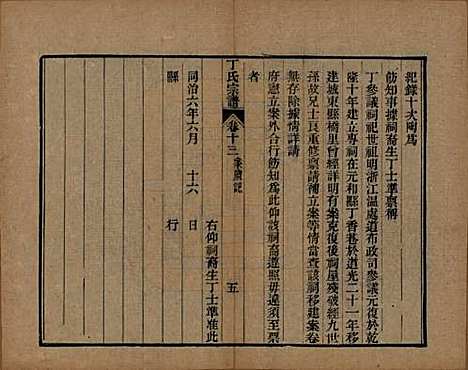 紀錄十次陶為
飭知事據祠裔生丁士準禀稱
丁參議祠祀世祖明浙江溫處道布政司參議元復於乾
隆十年建立專祠在元和縣丁香巷於道光二十一年移
建城東縣橋里曾經詳明有案克復後祠屋殘破經九世
孫故兄士良重修禀請補立案等情當查該祠移建案卷
無存除據情詳請
府憲立案外合行飭知為此仰該祠裔遵照毋違須至票
者
丁氏宗譜
卷十三
祭廟記
五
右仰祠裔生丁士準准此
同治六年六月 十六 日
縣 行